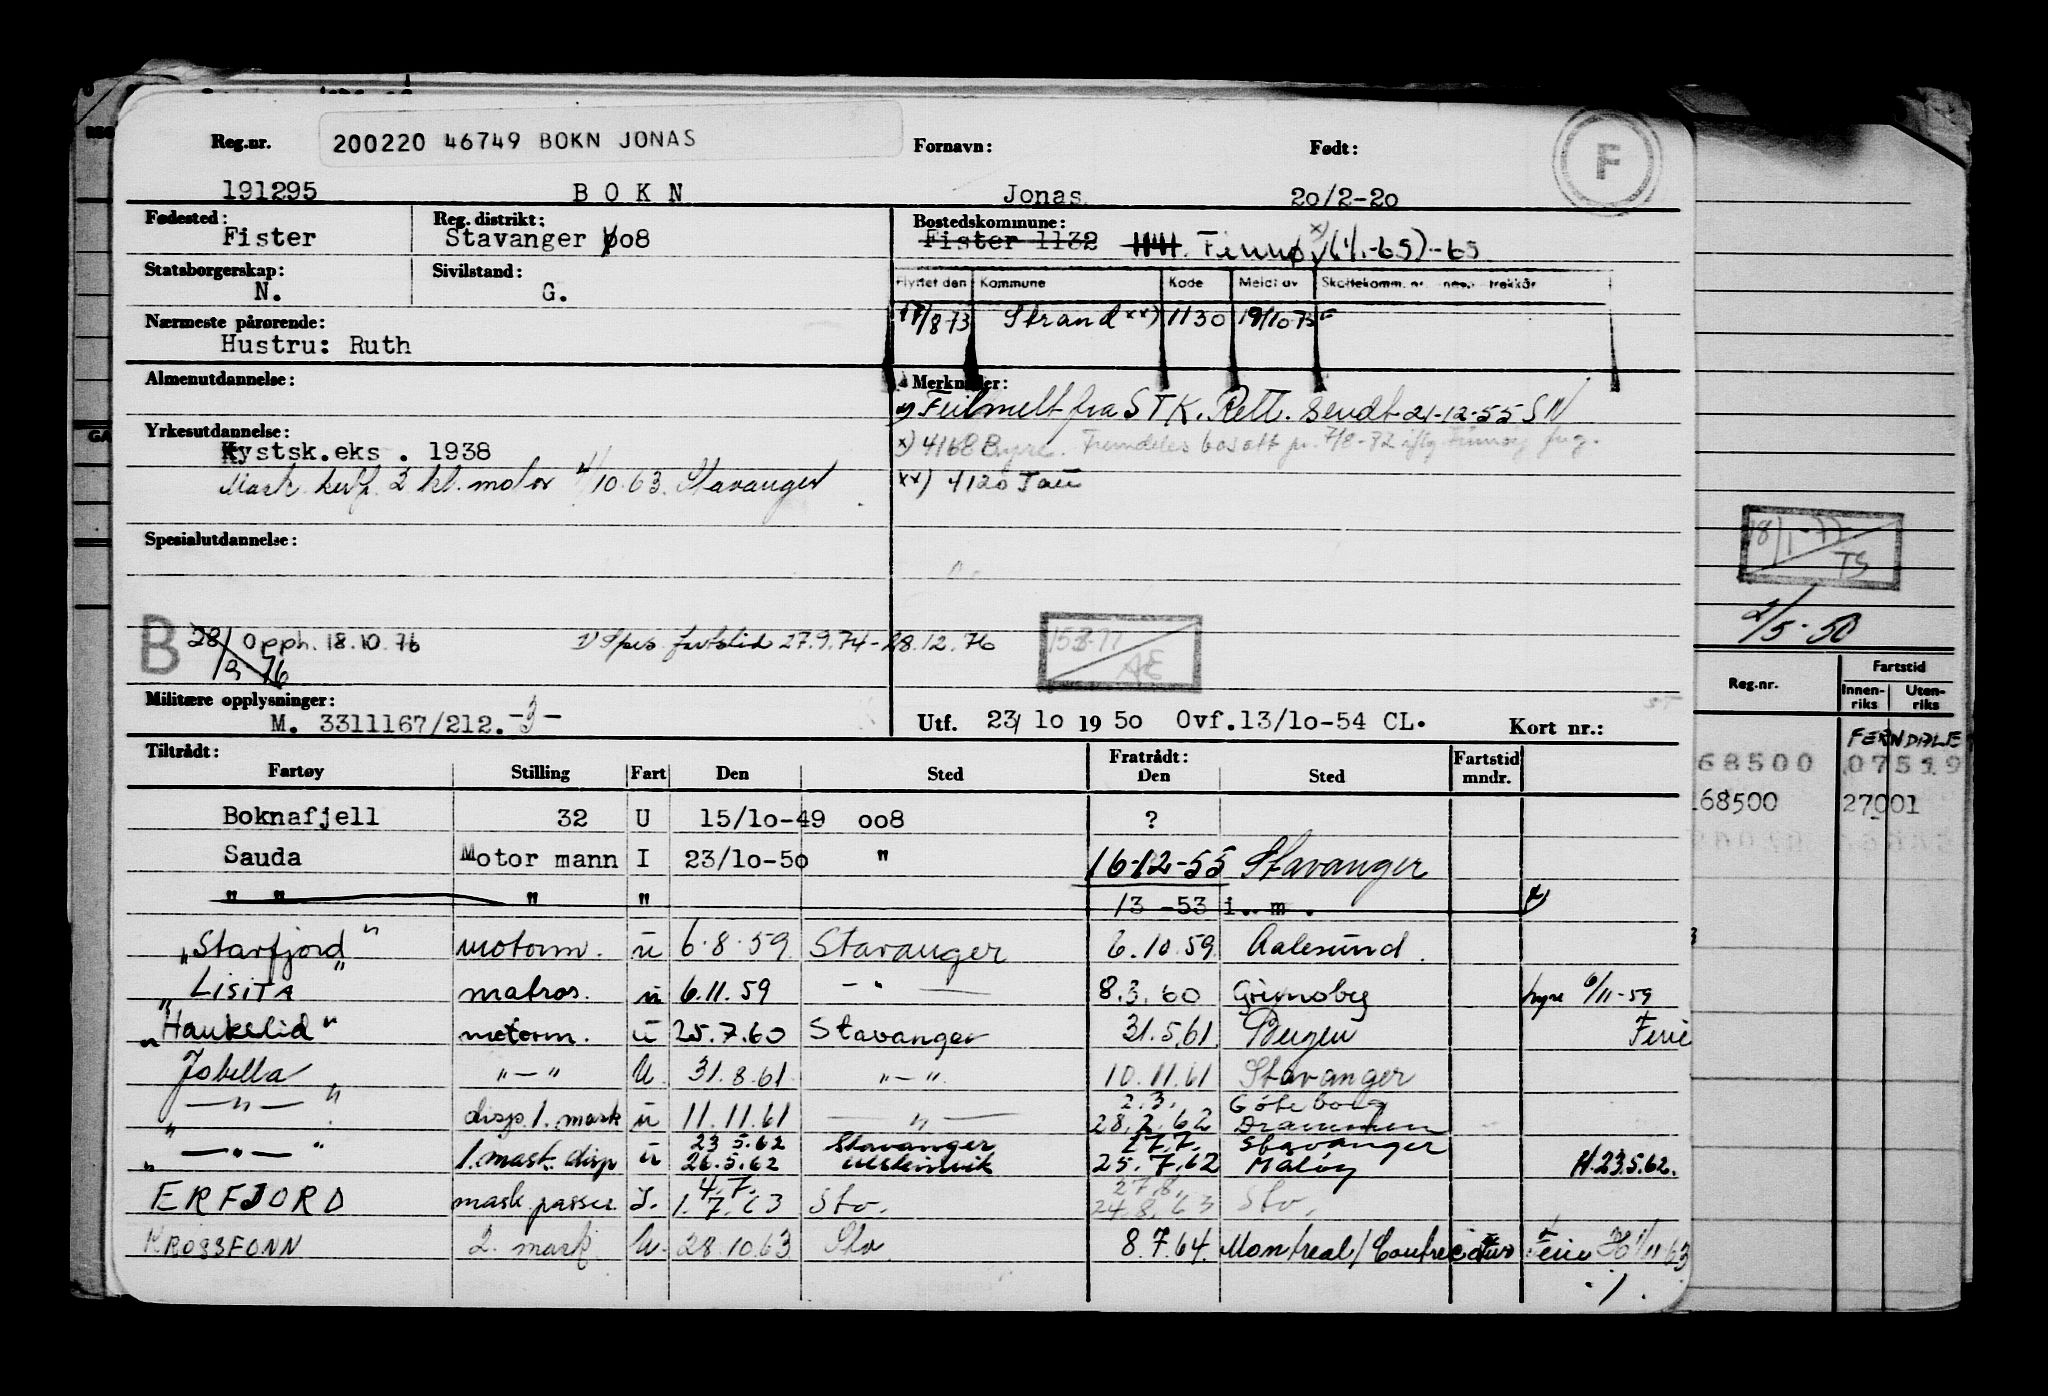 Reg.nr. 200220 46749 BOKN JONAS Fornavn: Født: F
191295 BOKN Jonas 20/2-20
Fødested: Reg. distrikt: Bostedskommune:
Fister Stavanger 008 Fister 1132 1141. Finnøy x) (1/1-65)-65
Statsborgerskap: Sivilstand:
N. G.
Flyttet den Kommune Kode Meldt av Skattekomm.
Nærmeste pårørende: 17/8 73 Strand xx) 1130 19/10 73
Hustru: Ruth
Almenutdannelse: Merknader:
Feilmelt fra STK. Rett. sendt 21-12-55 SN
Yrkesutdannelse:
Kystsk.eks. 1938 x) 4168 Byre. Fremdeles bosatt pr. 7/8-72 iflg Finnøy
Mask. 2 kl. motor /10.63. Stavanger xx) 4120 Tau
Spesialutdannelse:
B 28/9-76 Opph. 18.10.76 1) Spes. fartstid 27.9.74-28.12.76 AE
Militære opplysninger:
M. 3311167/212. -3- Utf. 23/10 1950 Ovf. 13/10-54 CL. Kort nr.:
Tiltrådt: Fratrådt: Fartstid
Fartøy Stilling Fart Den Sted Den Sted mndr.
Boknafjell 32 U 15/10-49 008 ?
Sauda Motor mann I 23/10-50 " 16-12-55 Stavanger
" " " " 13 -53 i. m.
"Starfjord" motorm. u 6.8.59 Stavanger 6.10.59 Aalesund.
"LISITA" matros. u 6.11.59 - " - 8.3.60 Grimsby hyre 6/11-59
"Haukelid" motorm. u 25.7.60 Stavanger 31.5.61 Bergen Ferie
Jobella "-" U 31.8.61 "-". 10.11.61 Stavanger
" -"- " disp 1. mask u 11.11.61 -"- 2.3. Göteborg
28.2.62 Drammen
" -"- " 1. mask. disp u 23.5.62 Stavanger 27.7. Stavanger
26.5.62 Ulsteinvik 25.7.62 Måløy H.23.5.62.
ERFJORD mask passer I. 4.7. 27.8.
1.7.63 Stv. 24.8.63 Stv.
KROSSFONN 2. mask U. 28.10.63 Stv 8.7.64. Montreal/Contrecoeur Ferie
./.
18/1-77
TS
2/5-50
Reg.nr. Fartstid
Innen-riks Uten-riks
FERNDALE
68500 07519
168500 27001